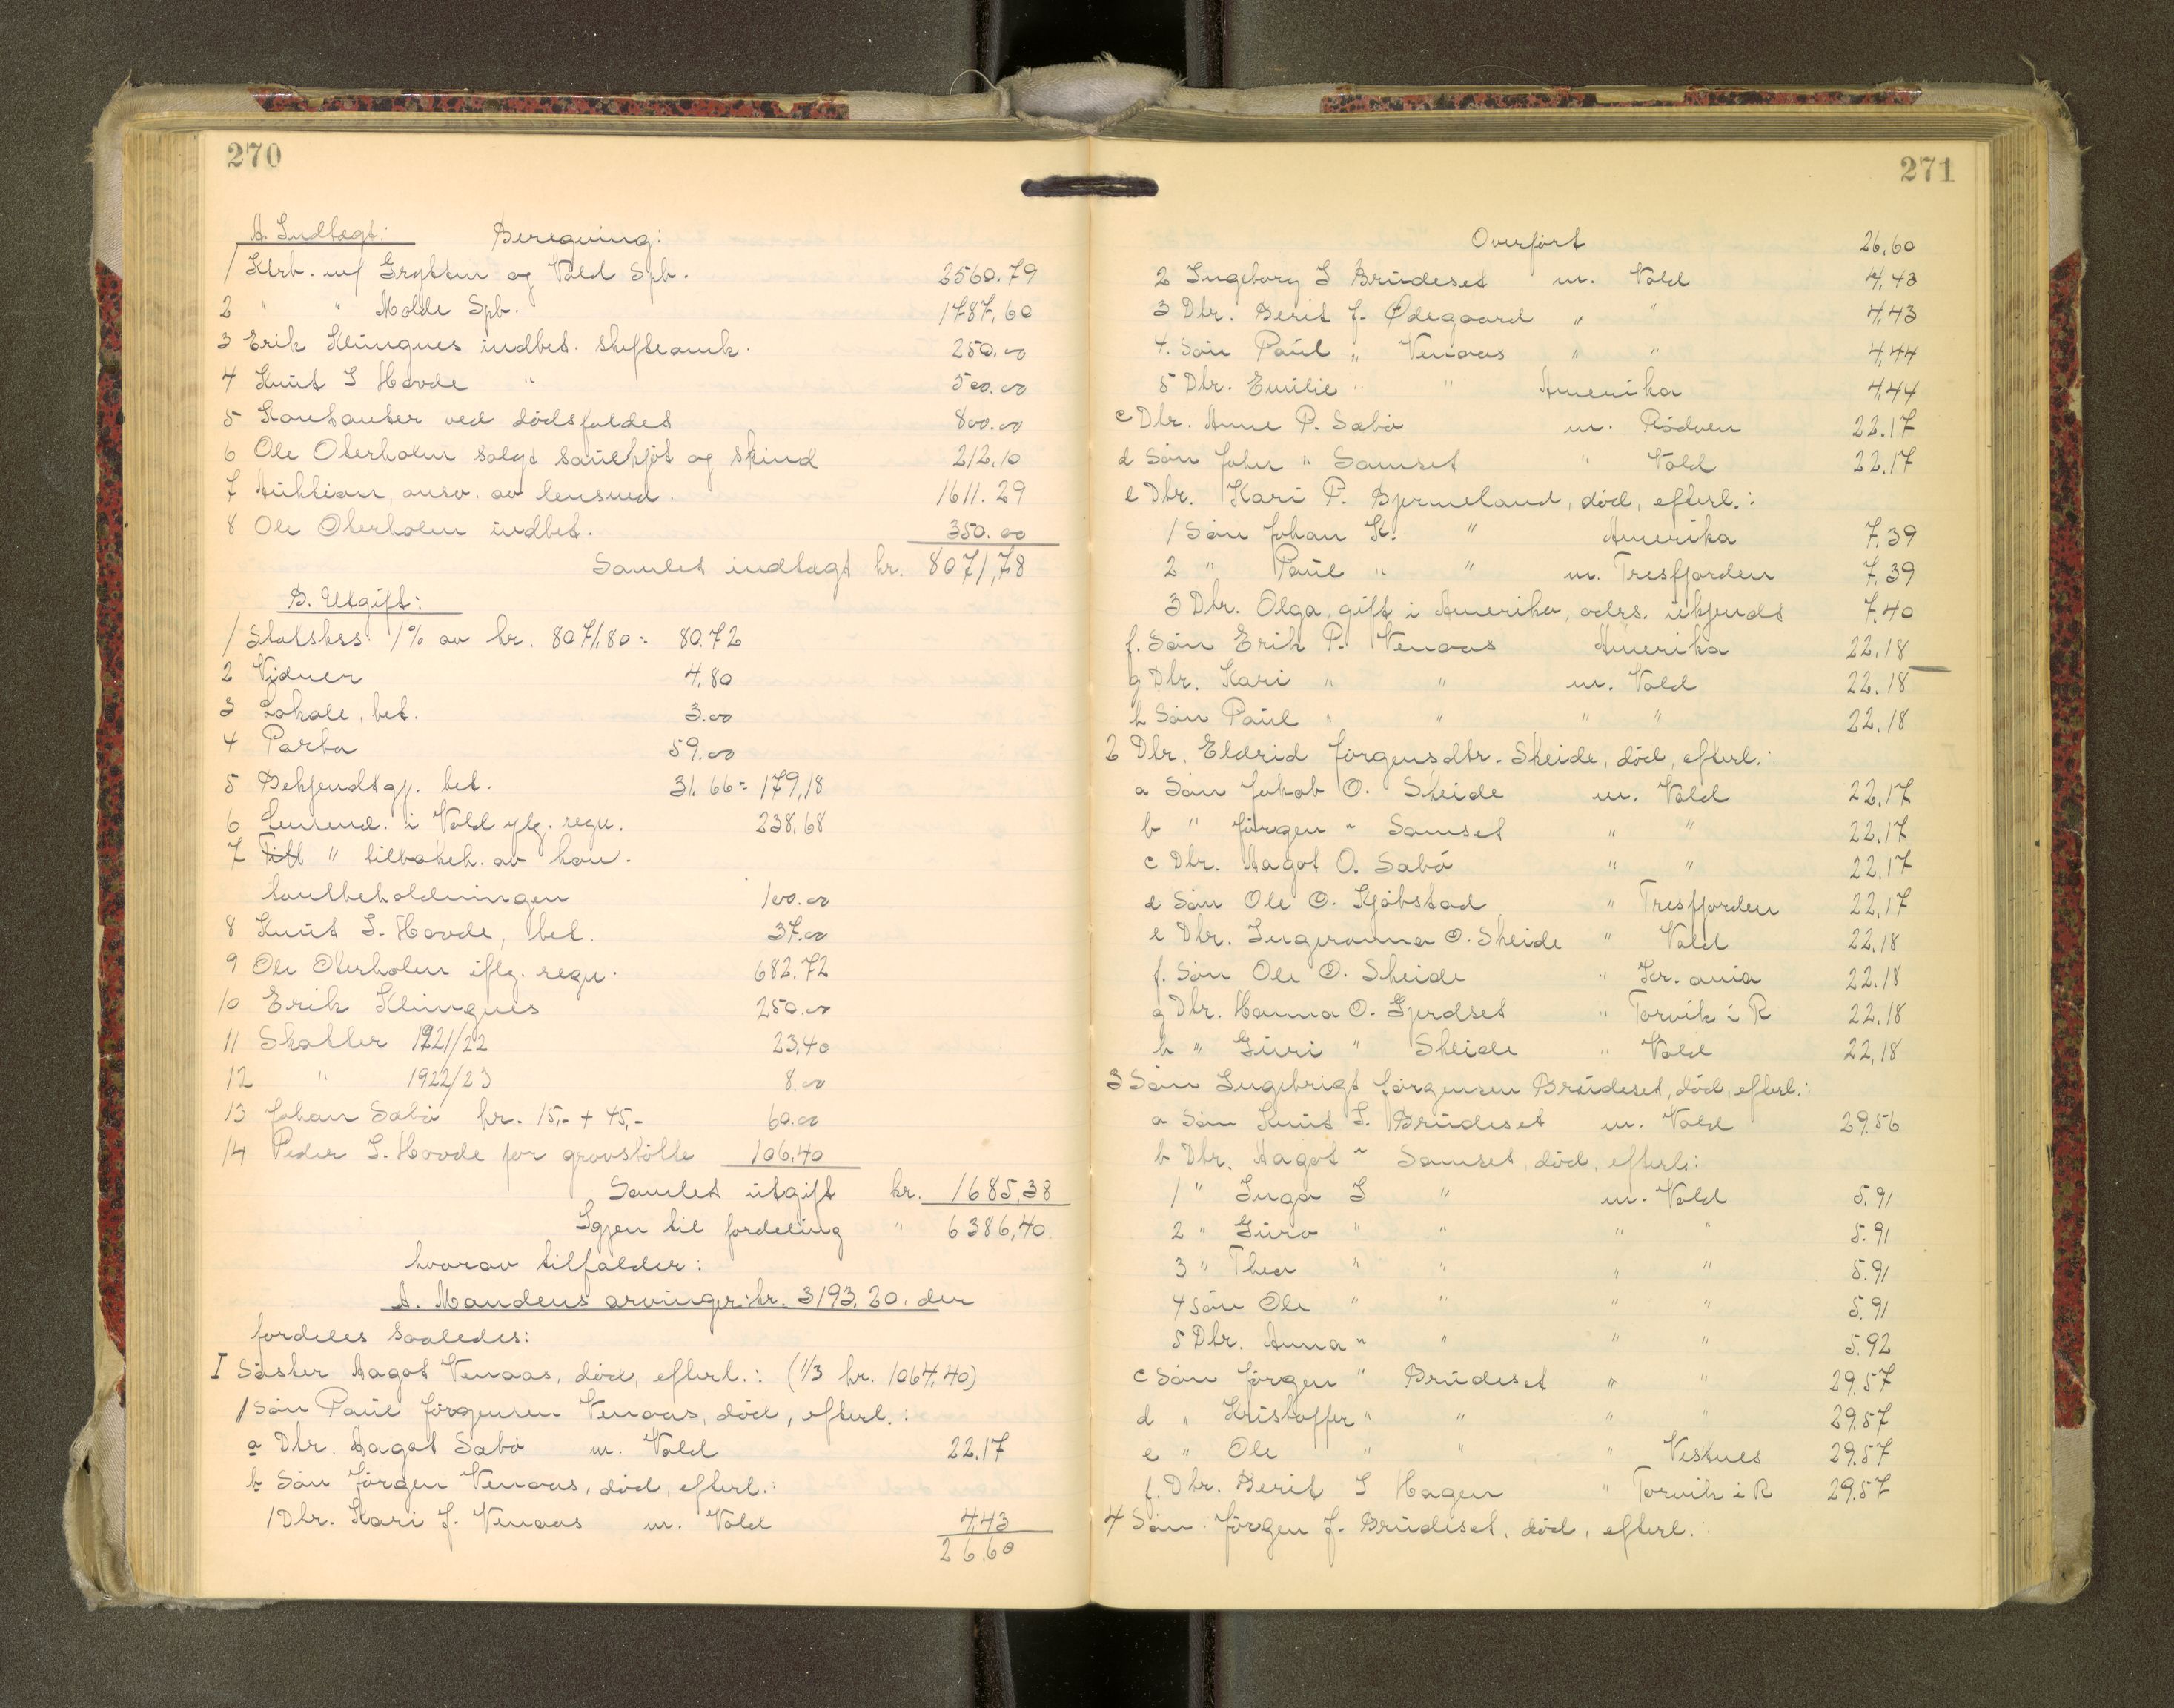 270
A. Indtægt: Beregning:
1 Ktrb. m/ Grytten og Vold Spb. 2560.79
2 " " Molde Spb. 1787,60
3 Erik Klungnes indbet. skifteomk. 250.00
4 Knut I Hovde " 500.00
5 Kontanter ved dødsfaldet 800.00
6 Ole Oterholm solgt sauekjøt og skind 212.10
7 Auktion, ansv. av lensmd. 1611.29
8 Ole Oterholm indbet. 350.00
Samlet indtægt kr. 8071,78
B. Utgift:
1 Statskss: 1% av kr. 8071.80 = 80.72
2 Vidner 4,80
3 Lokale, bet. 3.00
4 Porto 59.00
5 Bekjendtgj. bet. 31.66 = 179,18
6 Lensmd. i Vold iflg. regn. 238,68
7 " tilbakeh. av kon-
tantbeholdningen 100.00
8 Knut I. Hovde, bet. 37.00
9 Ole Oterholm iflg. regn. 682.72
10 Erik Klungnes 250.00
11 Skatter 1921/22 23,40
12 " 1922/23 8.00
13 Johan Sæbø kr. 15,- + 45,- 60.00
14 Peder I. Hovde for gravstøtte 106,40
Samlet utgift kr. 1685,38
Igjen til fordeling " 6386,40.
hvorav tilfalder:
A. Mandens arvinger: kr. 3193.20. der
fordeles saaledes:
I Søster Aagot Venaas, død, efterl.: (1/3 kr. 1064,40)
1 Søn Paul Jørgensen Venaas, død, efterl.:
a Dtr. Aagot Sæbø m. Vold 22.17
b Søn Jørgen Venaas, død, efterl.:
1 Dtr. Kari J. Venaas m. Vold 4,43
26.60
271
Overført 26,60
2 Ingeborg I Brudeset m. Vold 4,43
3 Dtr. Berit J. Ødegaard " " 4,43
4. Søn Paul " Venaas " " 4,44
5 Dtr. Emilie " " Amerika 4,44
c Dtr. Anne P. Sæbø m. Rødven 22.17
d Søn Joher " Samset " Vold 22.17
e Dtr. Kari P. Bjermeland, død, efterl.:
1 Søn Johan K. " Amerika 7,39
2 " Paul " " m. Tresfjorden 7,39
3 Dtr. Olga, gift i Amerika, adrs. ukjendt 7,40
f. Søn Erik P. Venaas Amerika 22,18
g Dtr. Kari " " m. Vold 22.18
h Søn Paul " " " " 22,18
2 Dtr. Eldrid Jørgensdtr. Skeide, død, efterl.:
a Søn Jakob O. Skeide m. Vold 22,17
b " Jørgen " Samset " " 22,17
c Dtr. Aagot O. Sæbø " " 22,17
d Søn Ole O. Kjøbstad " Tresfjorden 22,17
e Dtr. Ingeranna O. Skeide " Vold 22,18
f. Søn Ole O. Skeide " Kr.ania 22.18
g Dtr. Hanna O. Gjerdset " Torvik i R 22.18
h " Guri " Skeide " Vold 22,18
3 Søn Ingebrigt Jørgensen Brudeset, død, efterl.:
a Søn Knut I. Brudeset m. Vold 29.56
b Dtr. Aagot " Samset, død, efterl.:
1 " Inga I " m. Vold 5.91
2 " Guro " " " " 5.91
3 " Thea " " " " 5.91
4 Søn Ole " " " " 5.91
5 Dtr. Anna " " " " 5.92
c Søn Jørgen " Brudeset " " 29.57
d " Kristoffer " " " " 29.57
e " Ole " " " Vestnes 29.57
f. Dtr. Berit I Hagen " Torvik i R 29.57
4 Søn Jørgen J. Brudeset, død, efterl.: